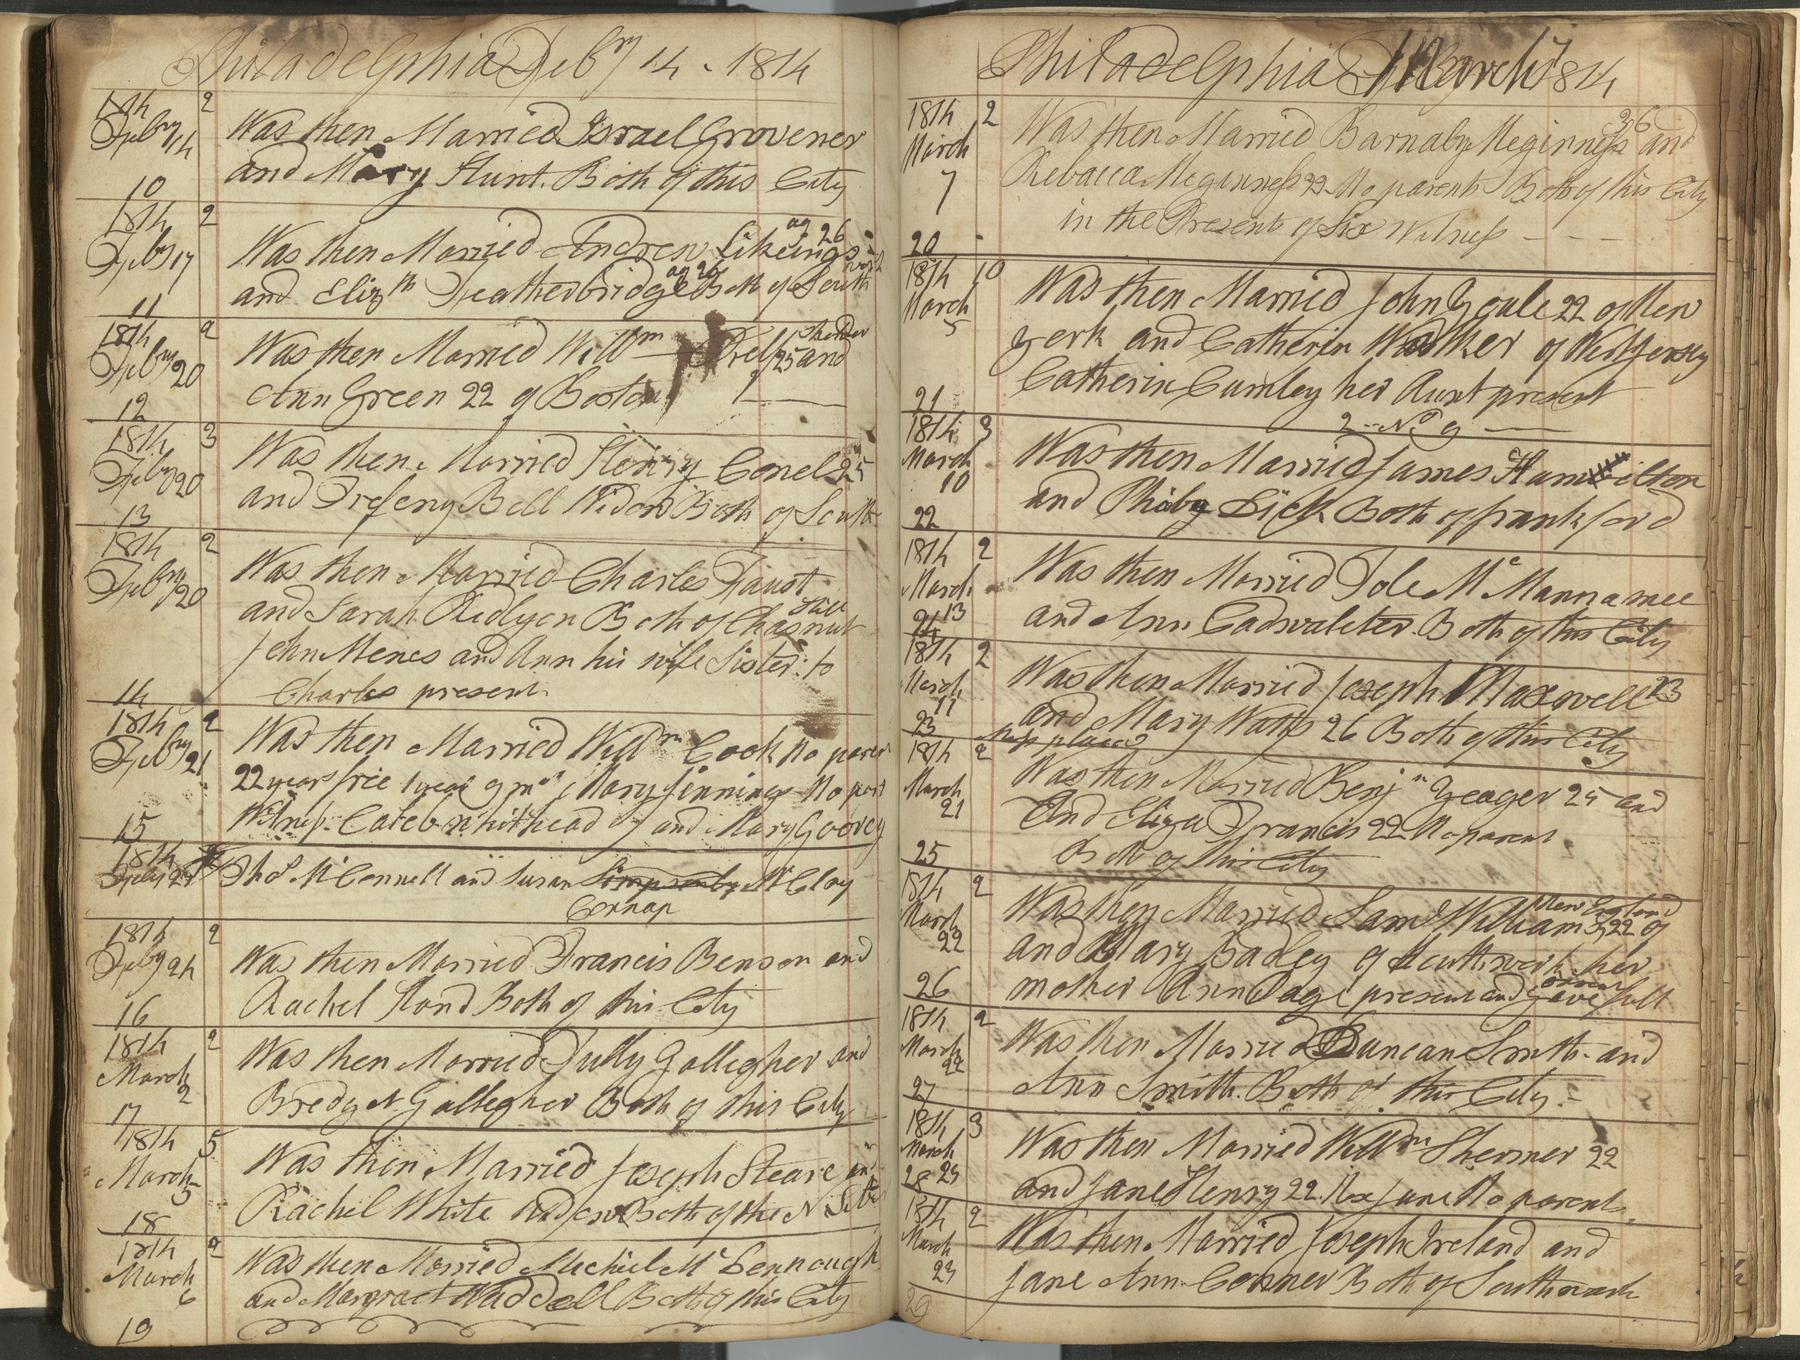 Philadelphia Feby 14 - 1814
1814 2
Feby 14
Was then Married Israel Grovener
and Mary Hunt. Both of this City
10
1814 2
Feby 17
ag 26
Was then Married Andrew Likeings
ag 26
and Elizth Featherbridge Both of South
11
1814 2
Feby 20
Was then Married Willm 25 and
Ann Green 22 of Boston
12
1814 3
Feby 20
Was then Married Henry Conel 25
and Bell Widow Both of South
13
1814 2
Feby 20
Was then Married Charles Faust
Hill
and Sarah Ridlyon Both of Chasnut
John Menes and Ann his wife Sister to
Charles present
14
1814 2
Feby 21
Was then Married Willm Cook No paren
22 years free 1 year 9 mo Mary Jinnings No part
Witness Caleb Whithead and Mary Goovey
15
1814
Feby 24
Thos McConnell and Susan McCloy
Connap
1814 2
Feby 24
Was then Married Francis Benson and
Rachel Hand Both of this City
16
1814 2
March 2
Was then Married Tully Gallegher and
Bredget Gallegher Both of this City
17
1814 5
March 5
Was then Married Joseph Steare and
Rachel White Widow Both of the N Liber
18
1814 2
March 6
Was then Married Michiel McLennough
and Margraet Waddell Both of this City
19
Philadelphia March 1814
1814 2
March
7
26
Was then Married Barnaby Meginness and
Rebacca Meginness 22 No parents Both of this City
in the Present of Six Witness
20
1814 10
March
5
Was then Married John Youle 22 of New
York and Catherin Walker of West Jersey
Catherin Cumley her Aunt present
21
2 - No 9
1814 3
March
10
Was then Married James Hamilton
and Phiby Lick Both of frankford
22
1814 2
March
13
Was then Married Tole McMannamee
and Ann Cadwaleter Both of this City
24
1814 2
March
11
Was then Married Joseph Maxwell 23
and Mary Watts 26 Both of this City
23
1814 2
March
21
Was then Married Benjn Yeager 25 and
And Eliza Francis 22 No parent
Both of this City
25
1814 2
March
22
New England
Was then Married Saml Williams 22 of
and Mary Badey of Southwork her
mother Ann Page present and gave full
26
1814 2
March
22
Was then Married Duncan Smith and
Ann Smith. Both of this City
27
1814 3
March
23
Was then Married Willm Shermer 22
and Jane Henry 22 Jane No parents
28
1814 2
March
23
Was then Married Joseph Ireland and
Jane Ann Conner Both of Southwark
29